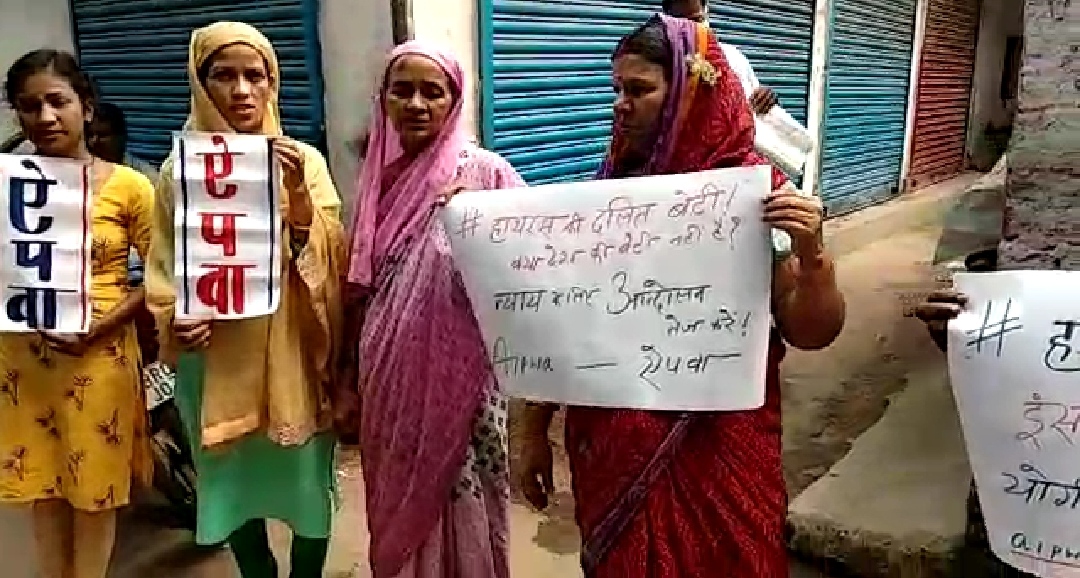 ऐ
प
वा
ऐ
प
वा
# हाथरस की दलित बेटी!
क्या देश की बेटी नहीं है?
न्याय के लिए आन्दोलन
तेज करें!
Aipwa — ऐपवा
# ह
इंस
योगी
aipw